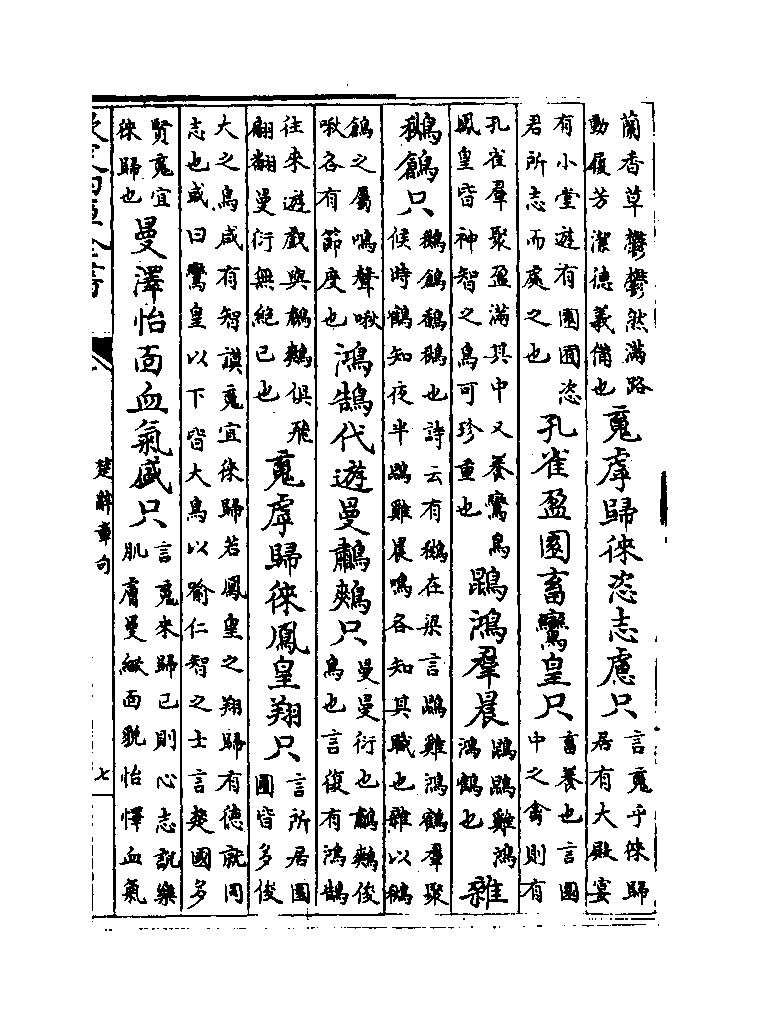 蘭香草鬱鬱然滿路
動履芳潔德義備也
䰟虖歸徠恣志慮只
言䰟乎徠歸
居有大殿宴
有小堂遊有園囿恣
君所志而處之也
孔雀盈園畜鸞皇只
畜養也言園
中之禽則有
孔雀羣聚盈滿其中又養鸞鳥
鳳皇皆神智之鳥可珍重也
鵾鴻羣晨
鵾鵾雞鴻
鴻鶴也
雜
鶖鶬只
鶖鶬鵚鶖也詩云有鶖在梁言鵾雞鴻鶴羣聚
候時鶴知夜半鵾雞晨鳴各知其職也雜以鶖
鶬之屬鳴聲啾
啾各有節度也
鴻鵠代遊曼鷫鷞只
曼曼衍也鷫鷞俊
鳥也言復有鴻鵠
往來遊戲與鷫鷞俱飛
翩翻曼衍無絶已也
䰟虖歸徠鳳皇翔只
言所居園
圃皆多俊
大之鳥咸有智謀䰟宜徠歸若鳳皇之翔歸有德就同
志也或曰鸞皇以下皆大鳥以喻仁智之士言楚國多
賢䰟宜
徠歸也
曼澤怡面血氣盛只
言䰟來歸已則心志說樂
肌膚曼緻面貌怡懌血氣
欽定四庫全書
楚辭章句
七